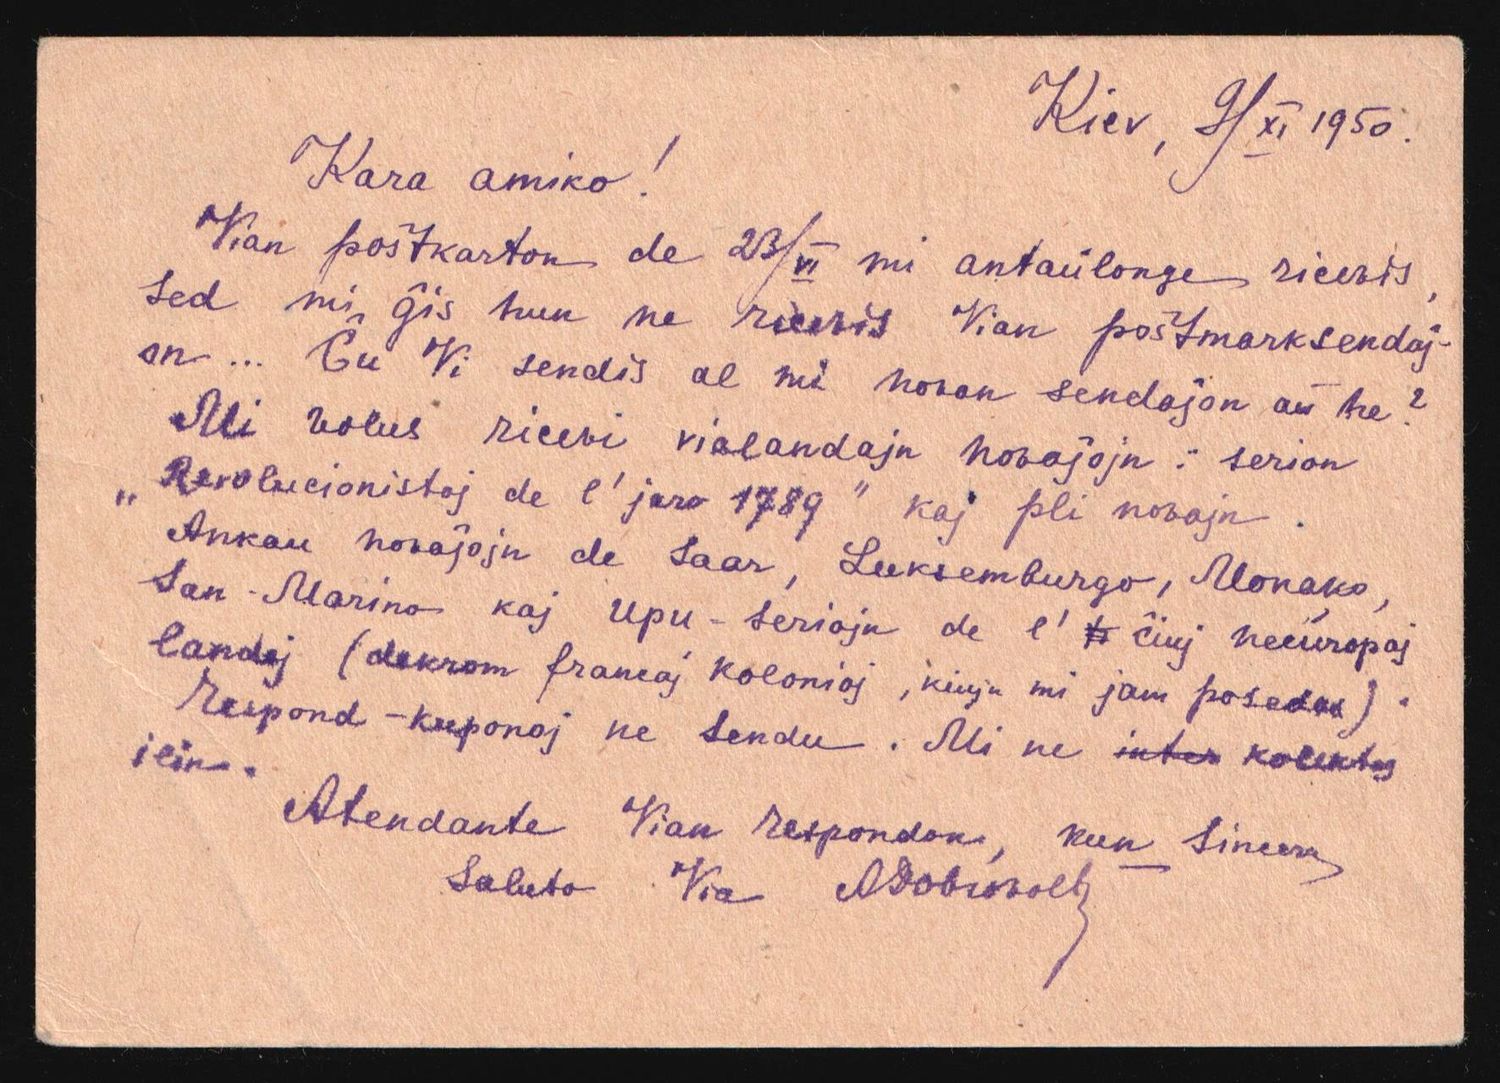 Kiev, 9/XI 1950.
Kara amiko!
Vian poŝtkarton de 23/VI mi antaŭlonge ricevis,
sed mi ĝis nun ne ricevis Vian poŝtmarksendaĵ-
on ... Ĉu Vi sendis al mi novan sendaĵon aŭ ne?
Mi volus ricevi vialandajn novaĵojn: serion
„Revolucionistoj de l' jaro 1789" kaj pli novajn.
Ankau novaĵojn de Saar, Luksemburgo, Monako,
San-Marino kaj UPU-seriojn de l' ĉiuj neeŭropaj
landoj (dekrom francaj kolonioj, kiujn mi jam posedas).
Respond-kuponoj ne sendu. Mi ne inter kolektas
ilin.
Atendante Vian respondon, kun sincera
saluto Via ADobrovol